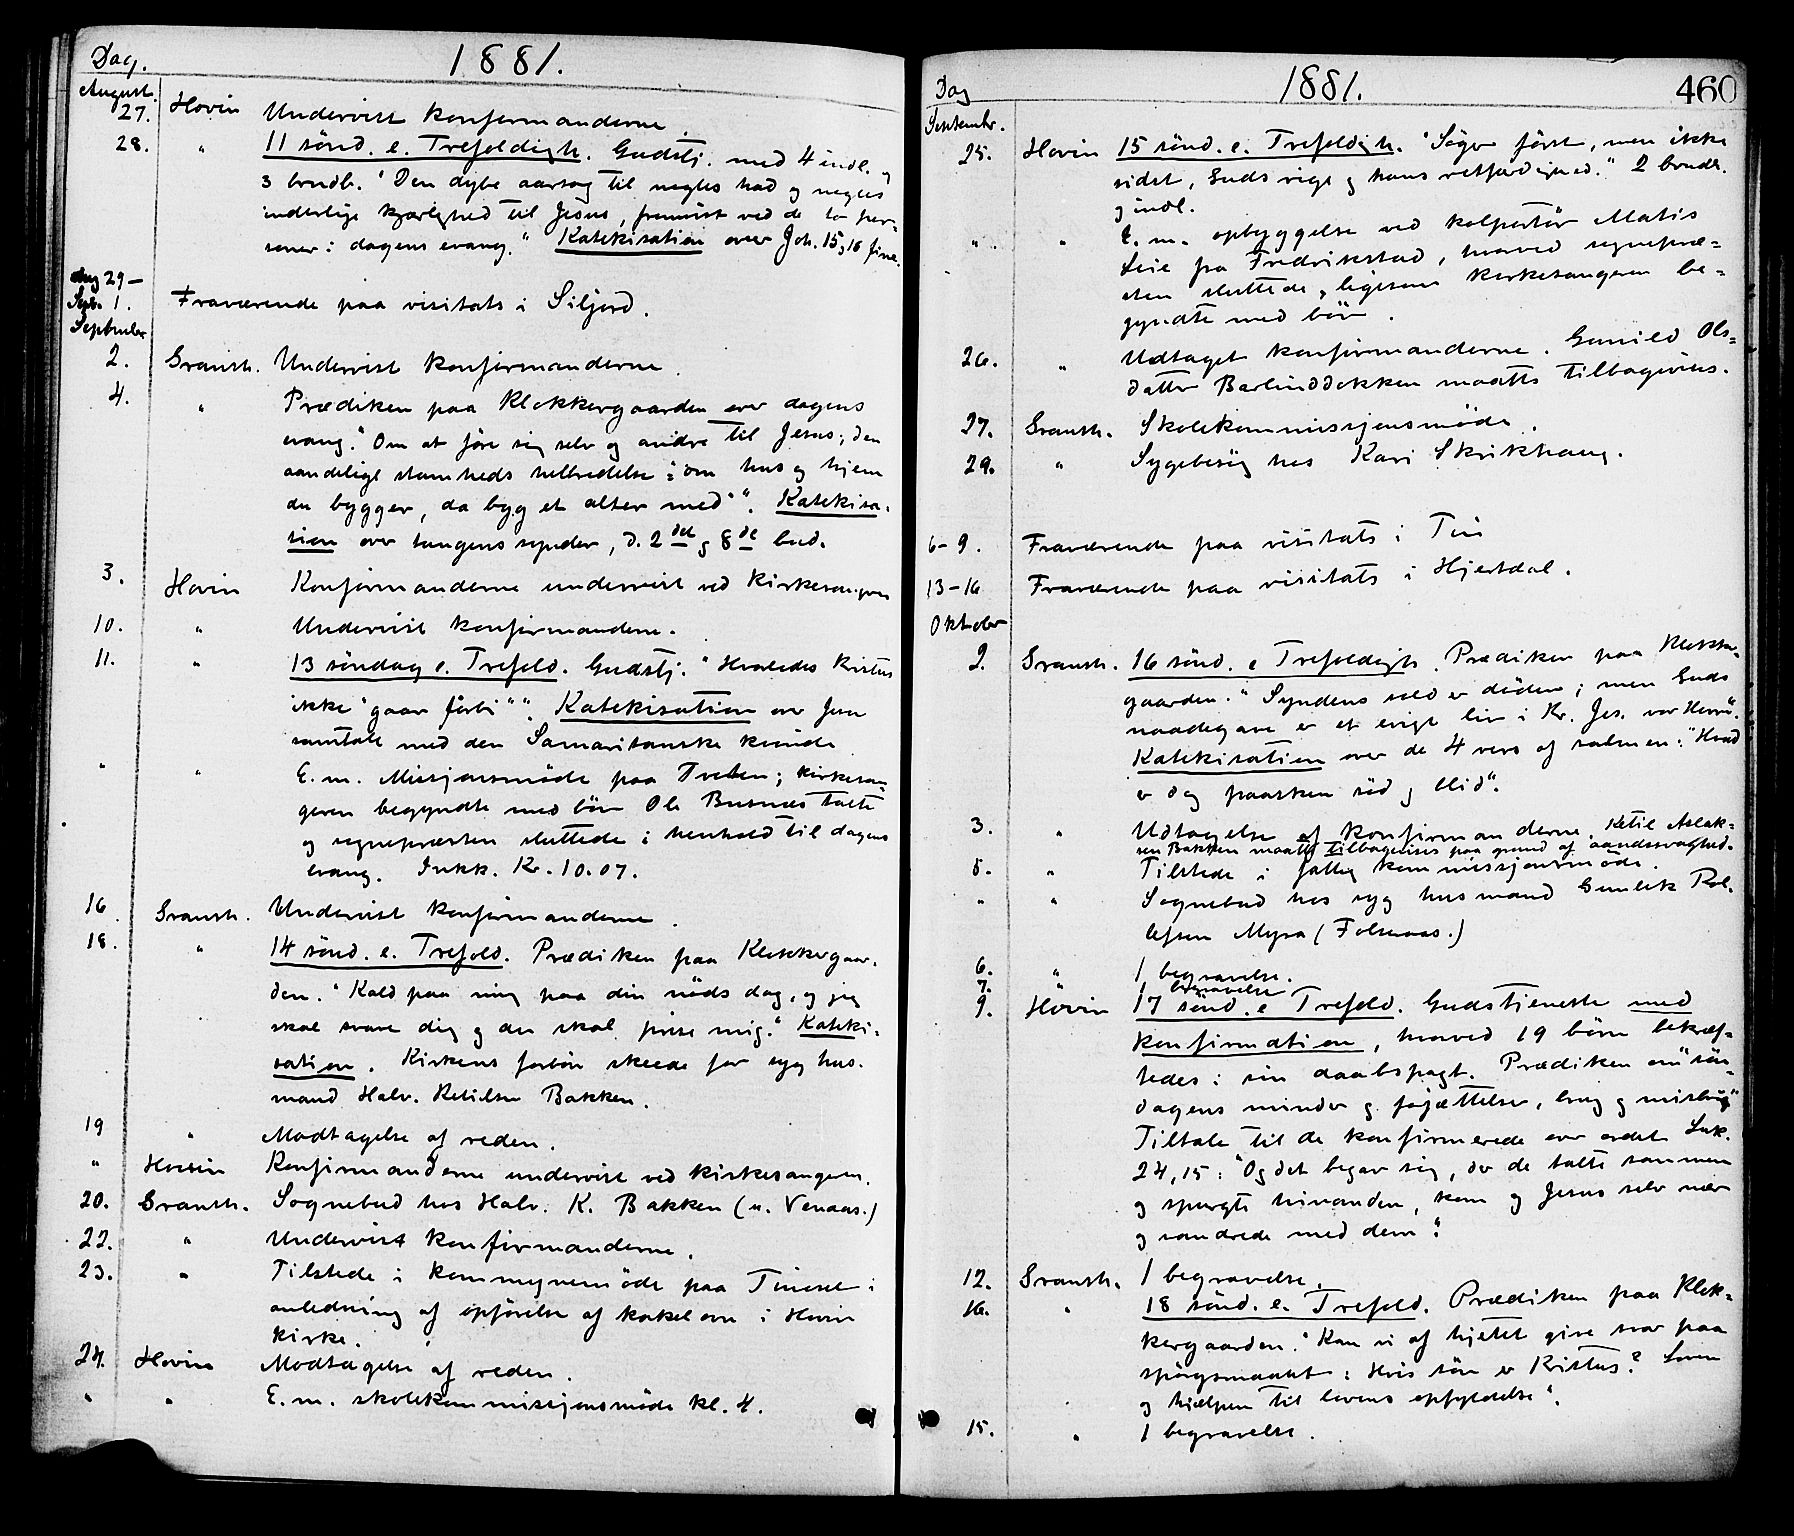 Dag. 1881.
August.
27. Hovin Undervist konfirmanderne.
28. " 11 sönd. e. Trefoldigh. Gudstj. med 4 indl. og
3 brudb. "Den dybe aarsag til nogles had og nogles
inderlige kjærlighed til Jesus, fremvist ved de to per-
soner i dagens evang." Katekisation over Joh. 15 og 16 fore.
Aug 29 –
Sept. 1. Fraværende paa visitats i Siljord.
September
2. Gransh. Undervist konfirmanderne.
4. " Prædiken paa Klokkergaarden over dagens
evang. "Om at före sig selv og andre til Jesus; den
aandelige stumheds helbredelse: "om hus og hjem
du bygger, da byg et alter med"". Katekisa-
tion over tungens synder, d. 2det og 8de bud.
3. Hovin Konfirmanderne undervist ved kirkesangeren
10. " Undervist konfirmanderne.
11. " 13 söndag e. Trefold. Gudstj. "Hvorledes Kristus
ikke "gaar forbi"". Katekisation over Jesu
samtale med den Samaritanske kvinde
" " E. m. Missjonsmöde paa Tveten; kirkesan-
geren begyndte med bön Ole Busnes talte
og sognepræsten sluttede i henhold til dagens
evang. Inkk. Kr. 10.07.
16. Gransh. Undervist konfirmanderne.
18. " 14 sönd. e. Trefold. Prædiken paa Klokkergaar-
den. "Kald paa mig paa din nöds dag, og jeg
skal svare dig og du skal prise mig." Kateki-
sation. Kirkens forbön skeede for syg hus-
mand Halv. Ketilsen Bakken.
19 " Modtagelse af reden.
" Hovin Konfirmanderne undervist ved kirkesangeren.
20. Gransh. Sognebud hos Halv. K. Bakken (u. Venaas.)
22. " Undervist konfirmanderne.
23. " Tilstede i kommunemöde paa Tinoset i
anledning af opförelse af kakelovn i Hovin
kirke.
24. Hovin Modtagelse af reden.
" " E. m. skolekommissjonsmöde kl. 4.
Dag 1881. 460
Septembr.
25. Hovin 15 sönd. e. Trefoldigh. "Söger först, men ikke
sidst, Guds rige og hans retfærdighed." 2 brudb.
og indl.
" " E. m. opbyggelse ved kolportör Matis
Leie pa Fredrikstad, hvorved sognepræ-
sten sluttede, ligesom kirkesangeren be-
gyndte med bön.
26. " Udtaget konfirmanderne. Gunild Ols-
datter Barlinddokken maatte tilbagevises.
27. Gransh. Skolekommissjonsmöde.
29. " Sygebesög hos Kari Skrikhaug.
6–9. Fraværende paa visitats i Tin
13–16 Fraværende paa visitats i Hjertdal.
Oktober
2. Gransh. 16 sönd. e Trefoldigh. Prædiken paa Klokker-
gaarden. "Syndens sold er döden; men Guds
naadegave er et evigt liv i Kr. Jes. vor Herre".
Katekisation over de 4 vers af salmen: "Hvad
er dog paasken söd og blid".
3. " Udtagelse af konfirmanderne. Ketil Aslak-
sen Bakken maatte tilbagevises paa grund af aandssvaghed.
5. " Tilstede i fattigkommissjonsmöde.
" " Sognebud hos syg husmand Gunleik Rol-
lefsen Myra (Folseraas.)
6. " 1 begravelse.
7. 1 begravelse
9. Hovin 17 sönd. e Trefold. Gudstjeneste med
konfirmation, hvorved 19 börn bekræf-
tedes i sin daabspagt. Prædiken om "sön-
dagens minder og forjættelser, brug og misbrug"
Tiltale til de konfirmerede over ordet Luk.
24, 15: "Og det begav sig, der de talte sammen
og spurgte hinanden, kom og Jesus selv nær
og vandrede med dem".
12. Gransh. 1 begravelse.
16. " 18 sönd. e. Trefold. Prædiken paa Klok-
kergaarden. "Kan vi af hjertet give svar paa
spörgsmaalet: Hvis sön er Kristus? Loven
og hjælpen til lovens opfyldelse".
15. " 1 begravelse.